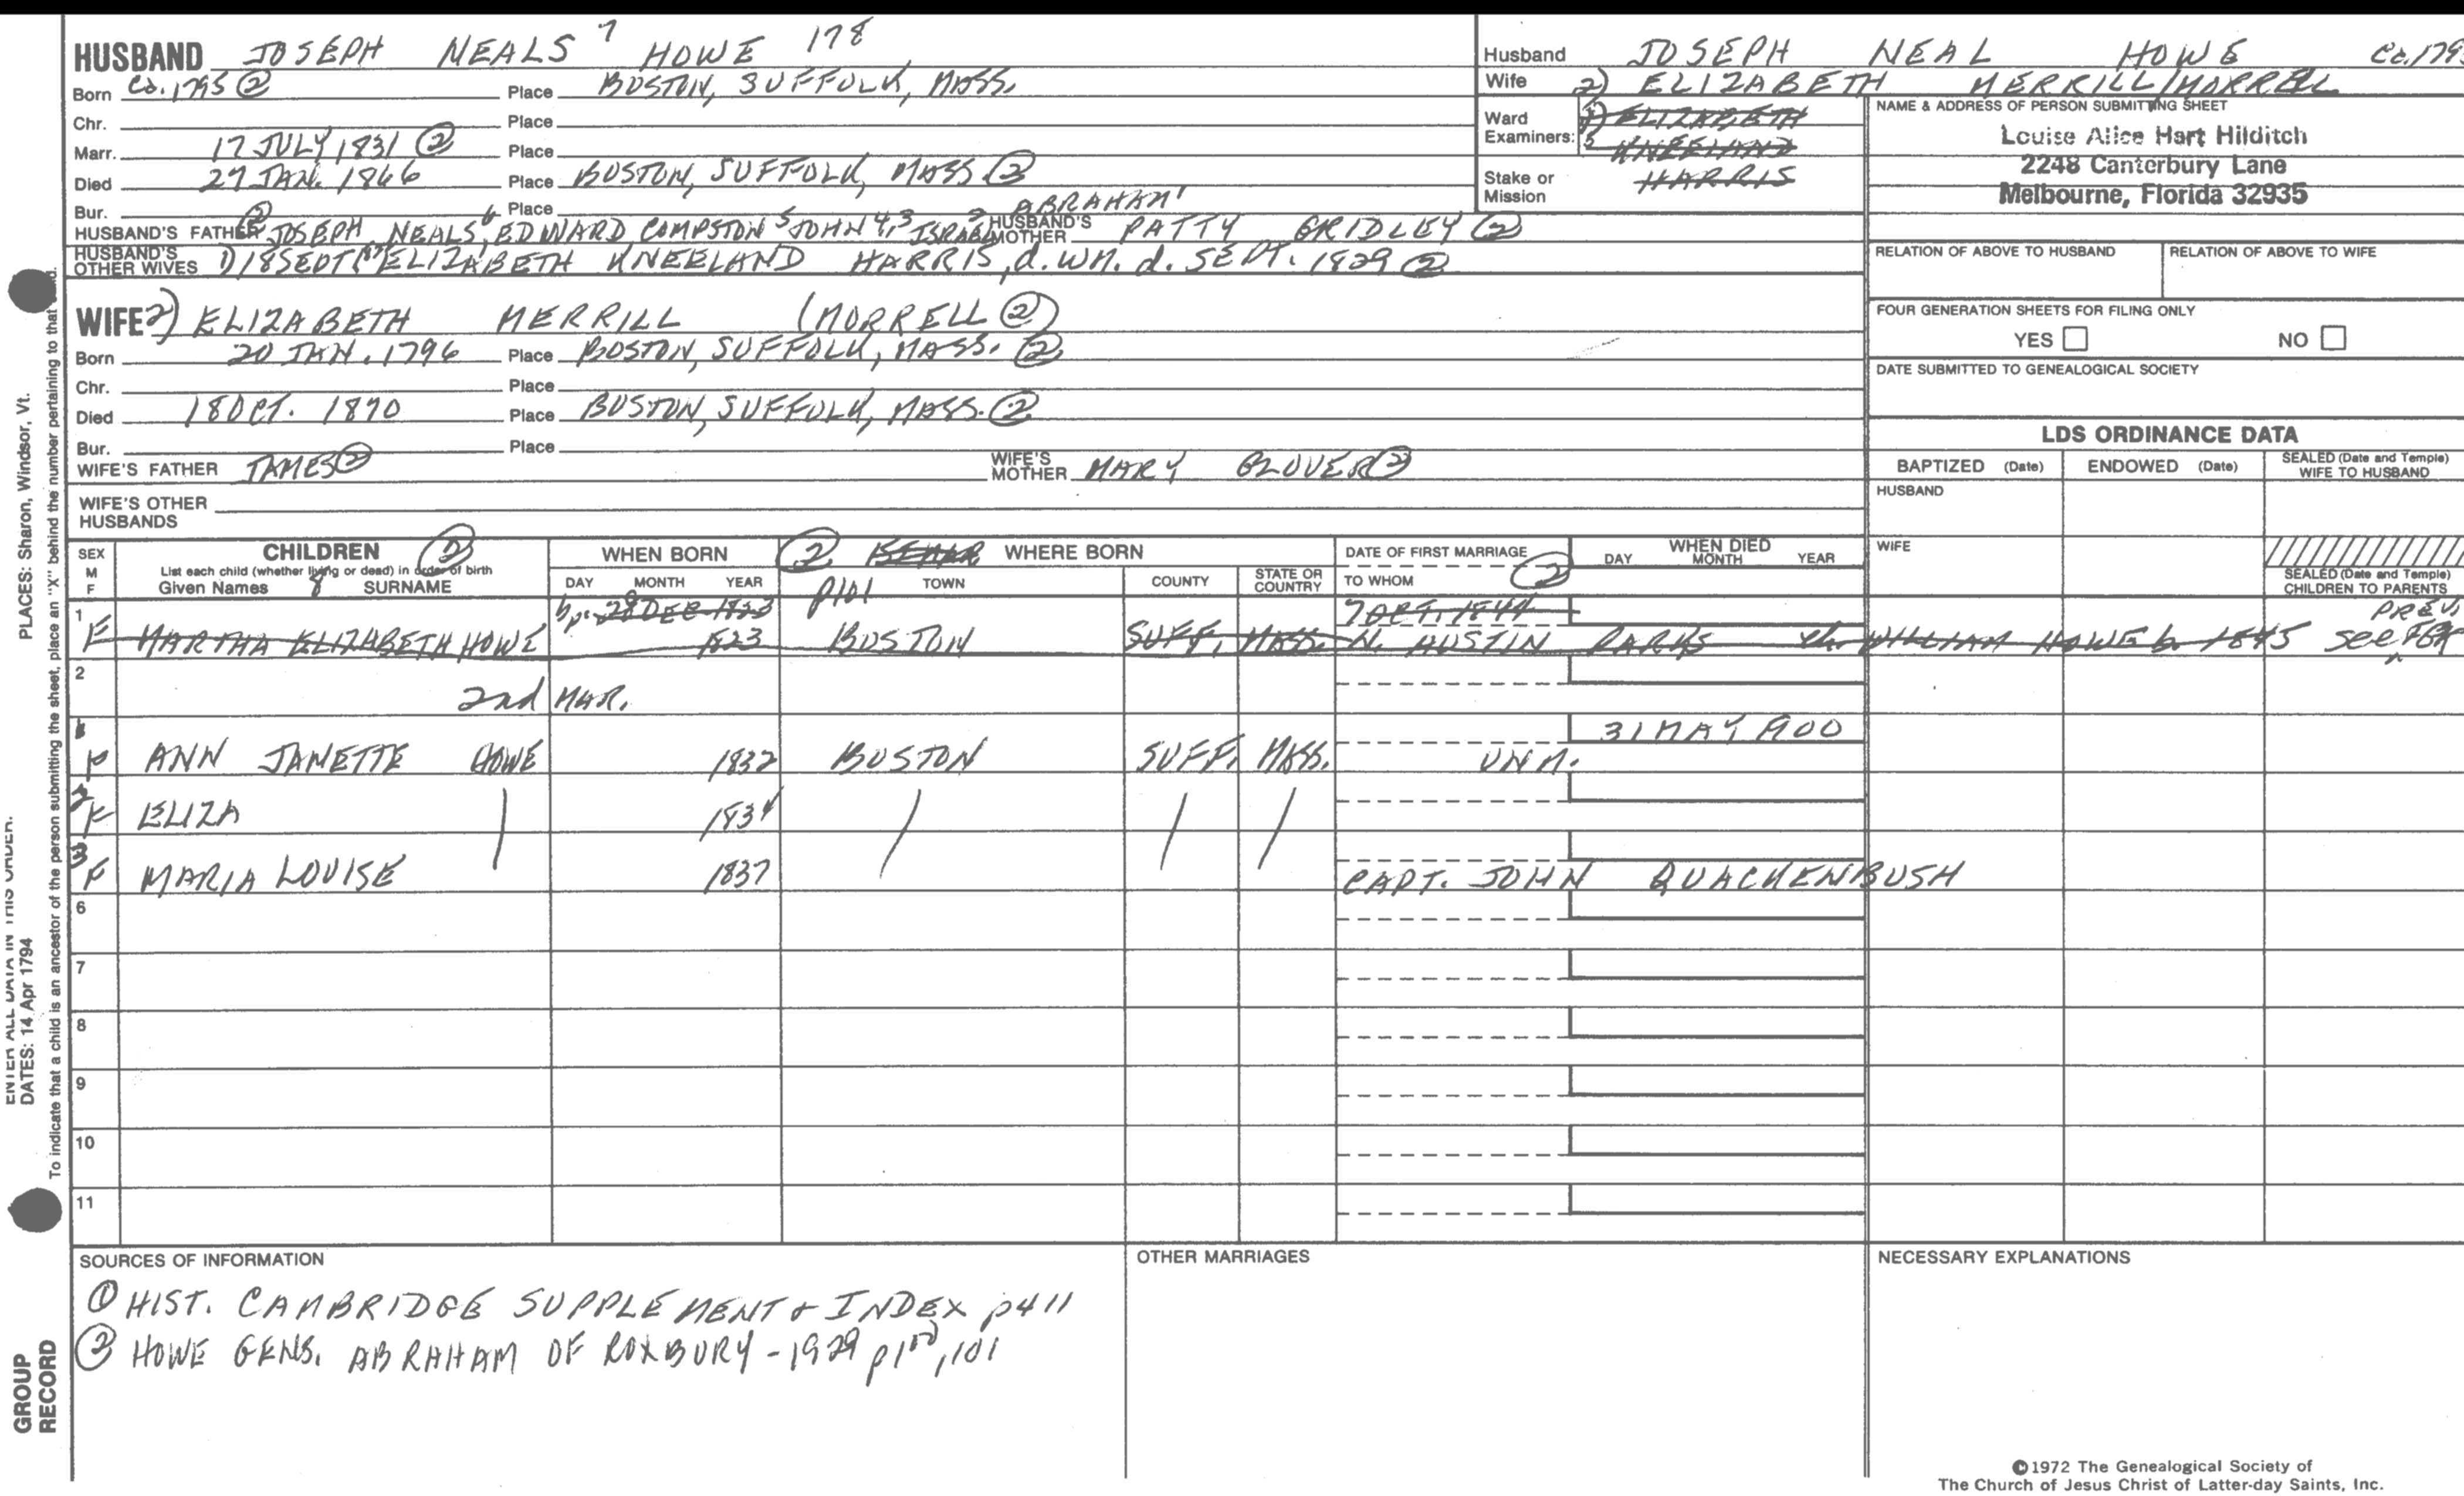 HUSBAND JOSEPH NEALS 7 HOWE 178
Born Ca. 1795 ② Place BOSTON, SUFFOLK, MASS.
Chr. Place
Marr. 17 JULY 1831 ② Place
Died 27 JAN. 1866 Place BOSTON, SUFFOLK, MASS ②
Bur. Place ABRAHAM 1
HUSBAND'S FATHER ② JOSEPH NEALS 6, EDWARD COMPSTON 5 JOHN 4,3 ISRAEL 2 HUSBAND'S MOTHER PATTY GRIDLEY ②
HUSBAND'S OTHER WIVES 1) 18 SEPT ELIZABETH KNEELAND HARRIS, d. Wm. d. SEPT. 1829 ②
WIFE 2) ELIZABETH MERRILL (MORRELL ②)
Born 20 JAN. 1796 Place BOSTON, SUFFOLK, MASS. ②
Chr. Place
Died 18 OCT. 1870 Place BOSTON, SUFFOLK, MASS. ②
Bur. Place
WIFE'S FATHER JAMES ② WIFE'S MOTHER MARY GLOVER ②
WIFE'S OTHER HUSBANDS
Husband JOSEPH NEAL HOWE Ca. 1795
Wife 2) ELIZABETH MERRILL/MORRELL
Ward Examiners: 1) ELIZABETH
2 KNEELAND
Stake or Mission HARRIS
NAME & ADDRESS OF PERSON SUBMITTING SHEET
Louise Alice Hart Hilditch
2248 Canterbury Lane
Melbourne, Florida 32935
RELATION OF ABOVE TO HUSBAND RELATION OF ABOVE TO WIFE
FOUR GENERATION SHEETS FOR FILING ONLY
YES NO
DATE SUBMITTED TO GENEALOGICAL SOCIETY
LDS ORDINANCE DATA
BAPTIZED (Date) ENDOWED (Date) SEALED (Date and Temple) WIFE TO HUSBAND
HUSBAND
WIFE
SEALED (Date and Temple) CHILDREN TO PARENTS
SEX M F CHILDREN ② WHEN BORN ② WHERE BORN DATE OF FIRST MARRIAGE ② WHEN DIED
List each child (whether living or dead) in order of birth
Given Names 8 SURNAME DAY MONTH YEAR p101 TOWN COUNTY STATE OR COUNTRY TO WHOM DAY MONTH YEAR
bp. 28 DEC 1823 7 OCT. 1844 PREV.
1 F MARTHA ELIZABETH HOWE 1823 BOSTON SUFF. MASS. N. AUSTIN PARKS ch. WILLIAM HOWE b. 1845 see FGR
2
2nd MAR.
31 MAY 1900
1 F ANN JANETTE HOWE 1832 BOSTON SUFF. MASS. UNM.
2 F ELIZA 1834
3 F MARIA LOUISE 1837 CAPT. JOHN QUACKENBUSH
6
7
8
9
10
11
SOURCES OF INFORMATION
① HIST. CAMBRIDGE SUPPLEMENT & INDEX p411
② HOWE GENS. ABRAHAM OF ROXBURY - 1929 p100, 101
OTHER MARRIAGES
NECESSARY EXPLANATIONS
©1972 The Genealogical Society of
The Church of Jesus Christ of Latter-day Saints, Inc.
PLACES: Sharon, Windsor, Vt.
ENTER ALL DATA IN THIS ORDER.
DATES: 14 Apr 1794
To indicate that a child is an ancestor of the person submitting the sheet, place an "X" behind the number pertaining to that child.
GROUP
RECORD